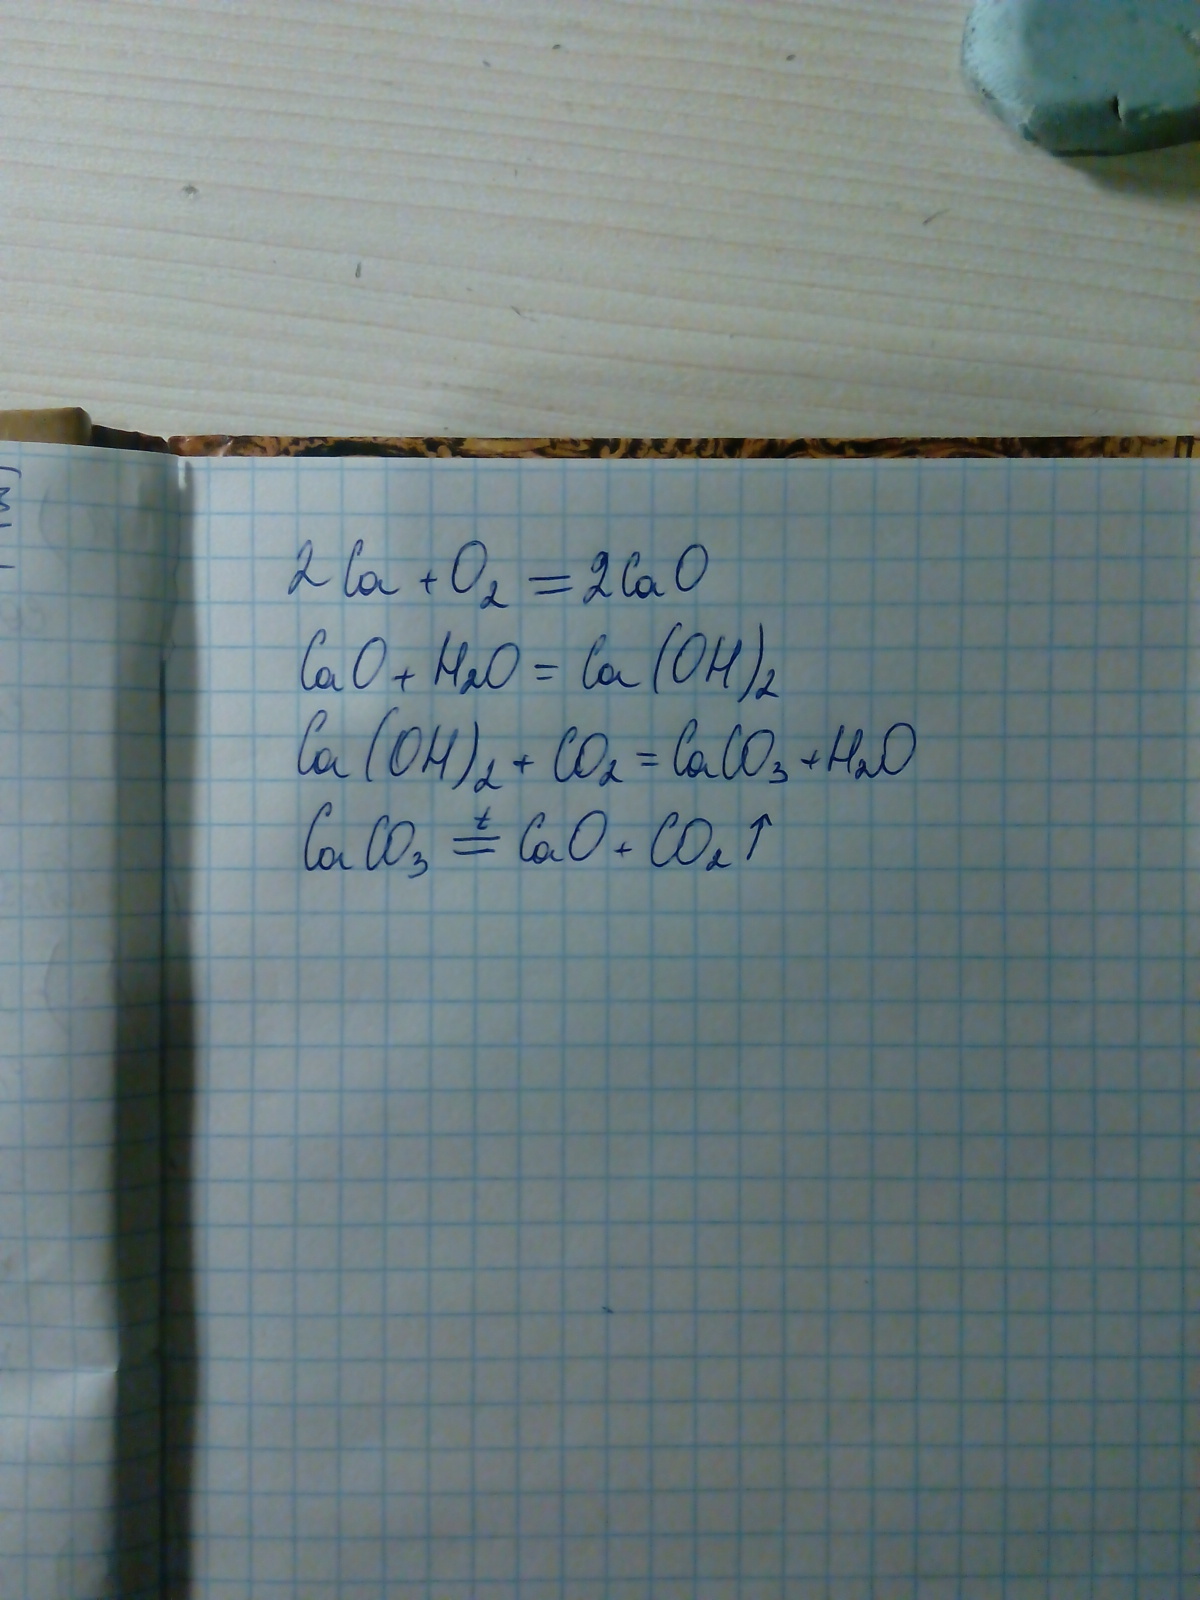 2Ca + O₂ = 2CaO
CaO + H₂O = Ca(OH)₂
Ca(OH)₂ + CO₂ = CaCO₃ + H₂O
CaCO₃ =ᵗ CaO + CO₂↑